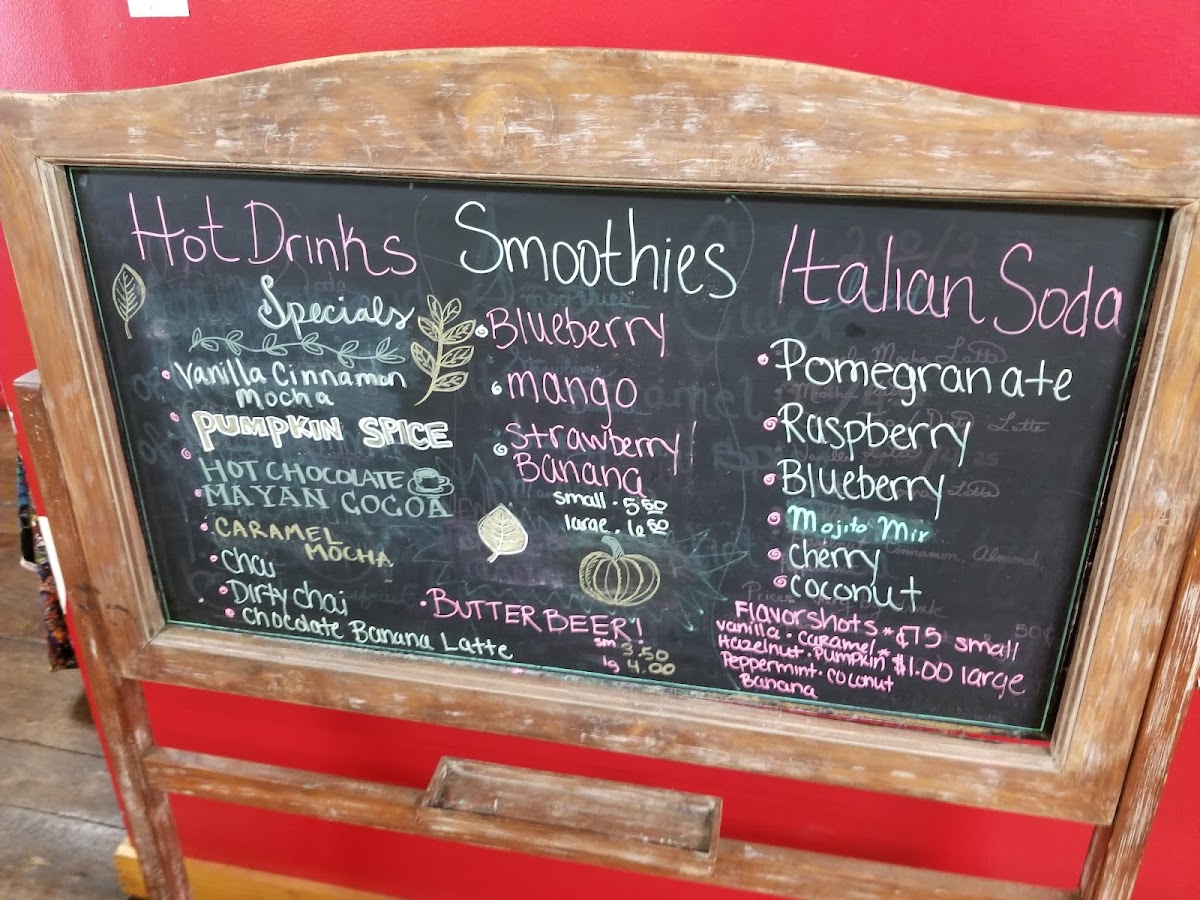 Hot Drinks
Specials
Vanilla Cinnamon
Mocha
PUMPKIN SPICE
HOT CHOCOLATE
MAYAN COCOA
CARAMEL
MOCHA
Chai
Dirty chai
Chocolate Banana Latte
Smoothies
Blueberry
mango
Strawberry
Banana
small . 5 50
large . 6 50
BUTTERBEER!
sm 3.50
lg 4.00
Italian Soda
Pomegranate
Raspberry
Blueberry
Mojito Mix
cherry
coconut
Flavor shots * ¢75 small
vanilla · caramel *
Hazelnut · Pumpkin $1.00 large
Peppermint · coconut
Banana